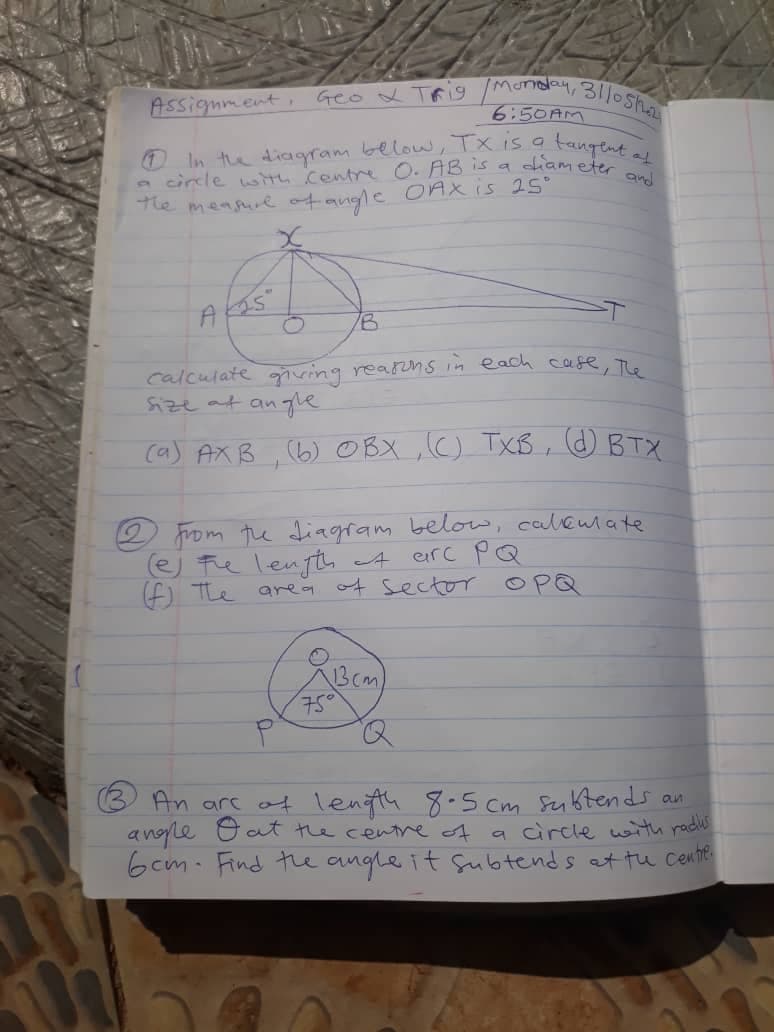 Assignment. Geo & Trig / Monday, 31/05/202
6:50AM
① In the diagram below, TX is a tangent of
a circle with centre O. AB is a diameter and
the measure of angle OAX is 25°
X
A 25° O B T
calculate giving reasons in each case, the
size of angle
(a) AXB, (b) OBX, (c) TXB, (d) BTX
② From the diagram below, calculate
(e) The length of arc PQ
(f) The area of sector OPQ
O
13cm
75°
P Q
③ An arc of length 8.5cm subtends an
angle θ at the centre of a circle with radius
6cm. Find the angle it subtends at the centre.